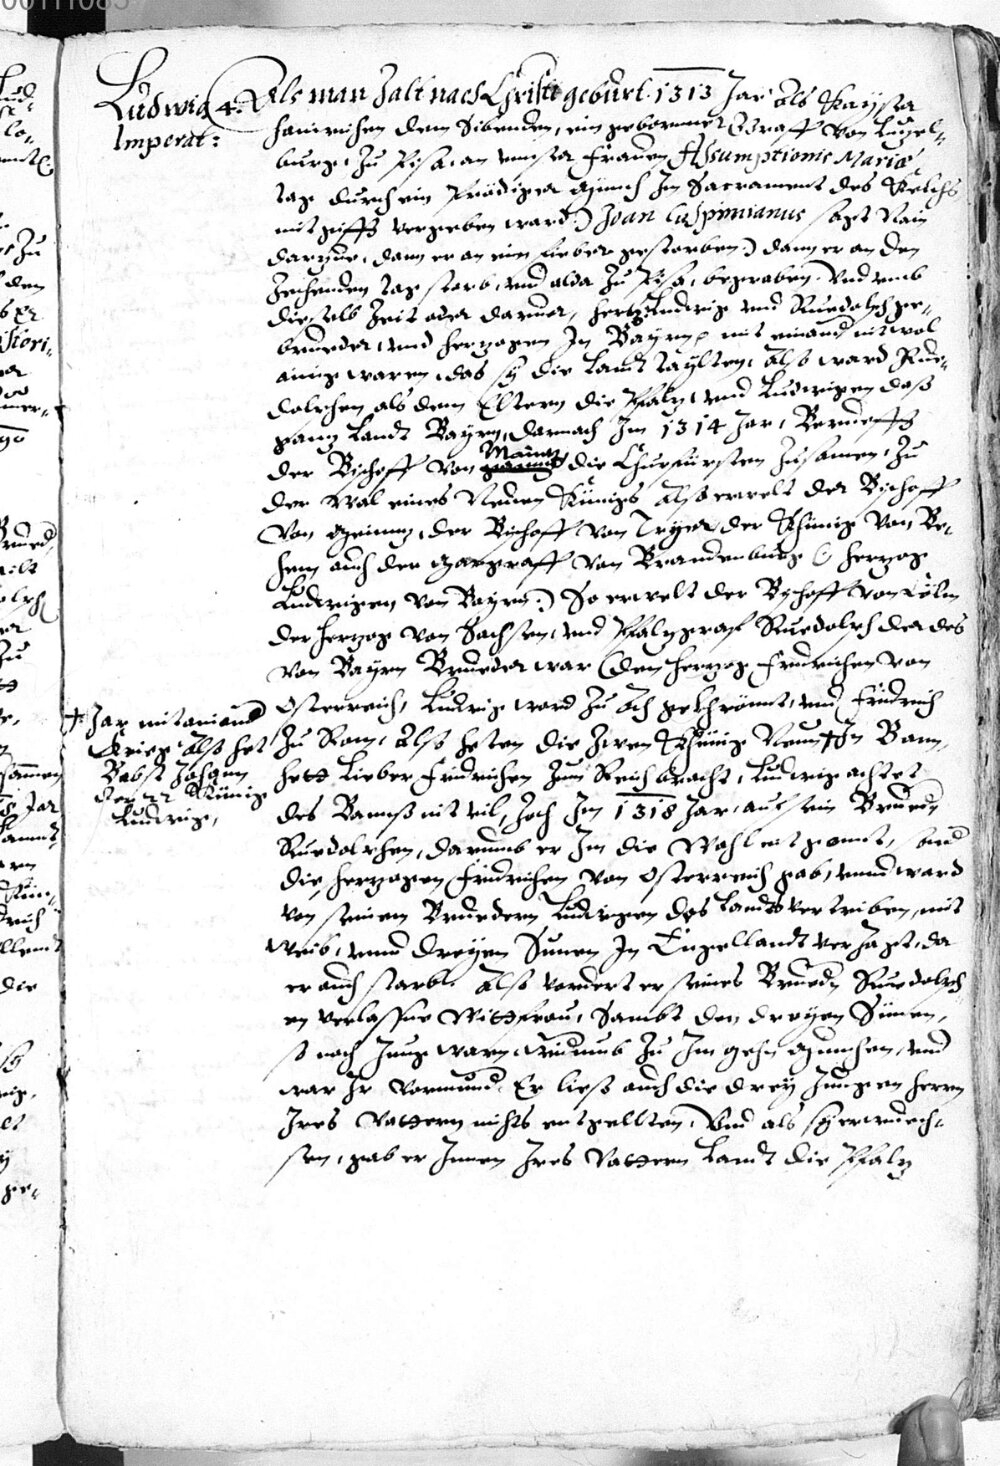 Ludwig 4.
Imperat:
Als man Zalt nach Christi geburt 1313 Jar als Kayser
Hainrichen dem Sibenden, ein geborner Graff von Luzel-
burg, zu Pisa, an unser Frauen Assumptionis Mariæ
tag durch ein Prediger Münch Im Sacrament des Kelchs
mit gifft vergeben ward) Joan Cuspinianus sagt Nain
darzue, dann er an eim Fieber gestorben) dann er an den
Zechenden tag starb, und alda zu Pisa, begraben. Und umb
dieselb Zeit oder darvor, Herzog Ludwig und Ruedolph ge-
brueder, und Herzogen In Bayrn, mit einand nit wol
ainig waren, das sy die Landt taylten, Also ward Rue-
dolphen als dem Eltern die Pfalz, und Ludwigen das
ganz Landt Bayrn, darnach Im 1314 Jar, Beruefft
der Bischoff von Mainz die Churfürsten zusamen, zu
der Wal eines Neuen Künigs Also erwelt der Bischoff
von Meinz, der Bischoff von Tryer der Khünig von Be-
hem auch der Margraff von Brandenburg Herzog
Ludwigen von Bayrn) So erwelt der Bischoff von Cöln
der Herzog von Sachsen, und Pfalzgraf Ruedolph der des
von Bayrn Brueder war (den Herzog Fridrichen von
Osterreich, Ludwig ward zu Ach gekhrönnt, und Fridrich
zu Bonn, Also heten die zwen Khünig Neun In Bann,
hett lieber Fridrichen zum Reich bracht, Ludwig achtet
des Banns nit vil, Zoch Im 1318 Jar, auf sein Brueder
Ruedolphen, darumb er Im die Wahl entgonnt, und
die Herzogen Fridrichen von Osterreich gab, unnd ward
von seinem Bruedern Ludwigen des Landts vertriben, mit
Weib, unnd dreyen Sunen In Engellandt verjagt, da
er auch starb. Also vordert er seines Brueders Ruedolph
en verlassne Wittfrau, Sambt den dreyen Sünen,
so noch Jung warn widerumb zu Im gehn München, und
war Ir Vormund. Er ließ auch die drey Jungen Herrn
Ires Vattern nichts entgellten. Und als sy erwuech-
sen, gab er Innen Ires Vattern Landt die Pfalz
Jar mitainand
Krieg Also het
Babst Johann
den Künig
Ludwig,